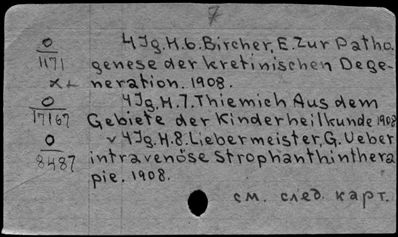 7
O 4 Jg. H. 6. Bircher, E. Zur Patho.
1171 genese der kretinischen Dege-
neration. 1908.
O 4 Jg. H. 7. Thiemich Aus dem
17167 Gebiete der Kinderheilkunde 1908
O v 4 Jg. H. 8. Liebermeister, G. Ueber
8487 intravenöse Strophanthinthera
pie. 1908.
см. след. карт.